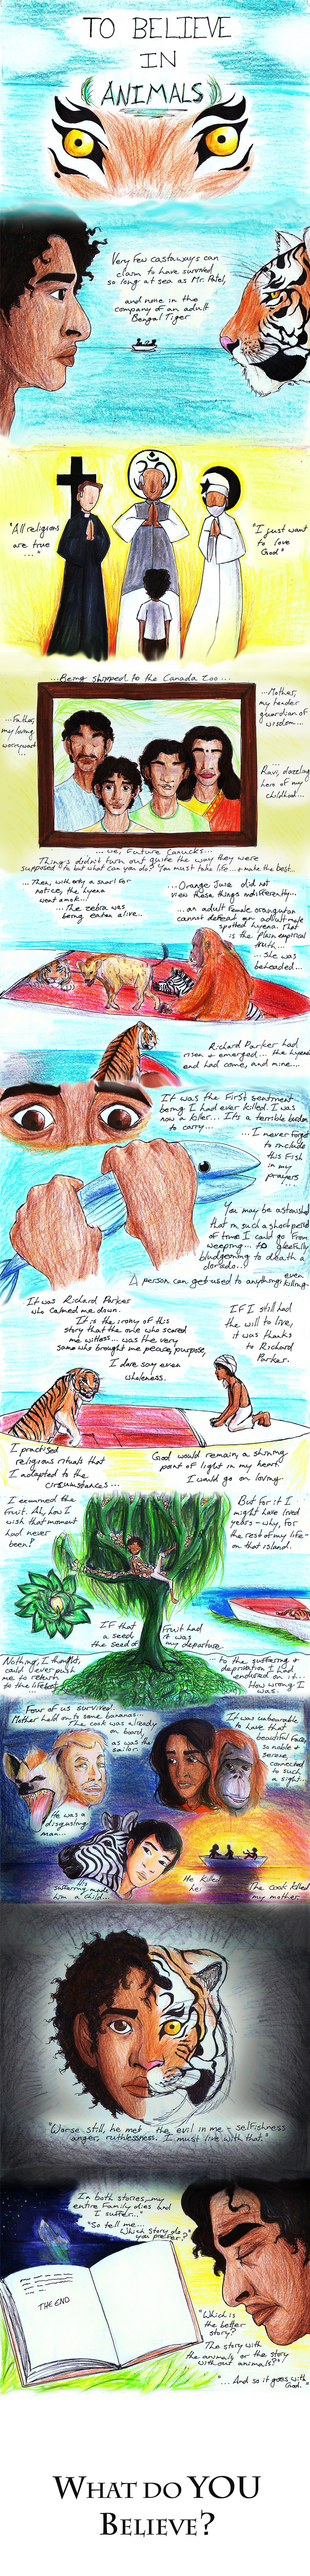 TO BELIEVE
IN
ANIMALS
Very few castaways can
claim to have survived
so long at sea as Mr. Patel,
and none in the
company of an adult
Bengal Tiger
"All religions
are true
..."
"I just want
to love
God"
...Being shipped to the Canada Zoo...
...Father,
my loving
worrywart
...
...Mother,
my tender
guardian of
wisdom...
...
Ravi, dazzling
hero of my
childhood...
...We, Future Canucks...
Things didn't turn out quite the way they were
supposed to but what can you do? You must take life... & make the best...
...Then, with only a snarl for
notice, the hyena
went amok...!
...The zebra was
being eaten alive...
...Orange Juice did not
view these things indifferently...
...an adult female orangutan
cannot defeat an adult male
spotted hyena. That
is the plain empirical
truth...
...She was
beheaded...
Richard Parker had
risen & emerged... the hyena's
end had come, and mine...
It was the first sentient
being I had ever killed. I was
now a killer... It's a terrible burden
to carry...
...I never forget
to include
this fish
in my
prayers
...
You may be astonished
that in such a short period
of time I could go from
weeping... to gleefully
bludgeoning to death a
dorado...
A person can get used to anything; even
killing.
It was Richard Parker
who calmed me down.
It is the irony of this
story that the one who scared
me witless... was the very
same who brought me peace, purpose,
I dare say even
wholeness.
If I still had
the will to live,
it was thanks
to Richard
Parker.
I practised
religious rituals that
I adapted to the
circumstances...
God would remain, a shining
point of light in my heart.
I would go on loving.
I examined the
fruit. Ah, how I
wish that moment
had never
been!
But for it I
might have lived
years - why, for
the rest of my life -
on that island.
If that
a seed,
the seed of
Fruit had
it was
my departure.
Nothing, I thought,
could ever push
me to return
to the lifeboat
...
...to the suffering &
deprivation I had
endured on it...
How wrong I
was.
Four of us survived.
Mother held on to some bananas...
The cook was already
on board,
as was the
sailor.
It was unbearable
to have that
beautiful face,
so noble &
serene,
connected
to such
a sight...
He was a
disgusting
man...
His
suffering made
him a child...
He killed
her.
The cook killed
my mother.
"Worse still, he met the evil in me - selfishness
anger, ruthlessness. I must live with that."
In both stories, my
entire family dies and
I suffer..."
"So tell me...
Which story do
you prefer?"
THE END
"Which is
the better
story?
The story with
the animals or the story
without animals?"
"...And so it goes with
God."
WHAT DO YOU
BELIEVE?